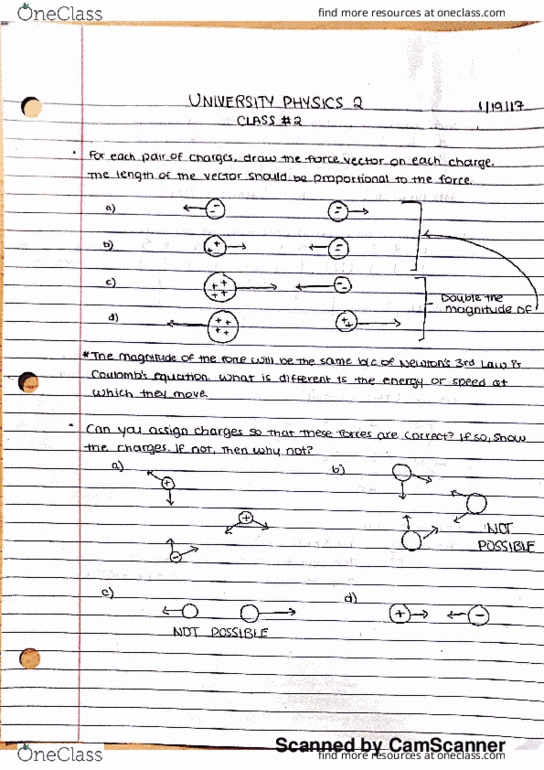 OneClass
find more resources at oneclass.com
UNIVERSITY PHYSICS 2
1/19/17
CLASS #2
• For each pair of charges, draw the force vector on each charge.
The length of the vector should be proportional to the force.
a) - -
b) + -
c) ++ ++ -
Double the
magnitude of
d) ++ ++ ++
*The magnitude of the force will be the same b/c of Newton's 3rd Law &
Coulomb's equation. What is different is the energy or speed at
which they move.
• Can you assign charges so that these forces are correct? If so, show
the charges. If not, then why not?
a) b)
+
+
-
NOT
POSSIBLE
c) d)
+ -
NOT POSSIBLE
Scanned by CamScanner
OneClass
find more resources at oneclass.com